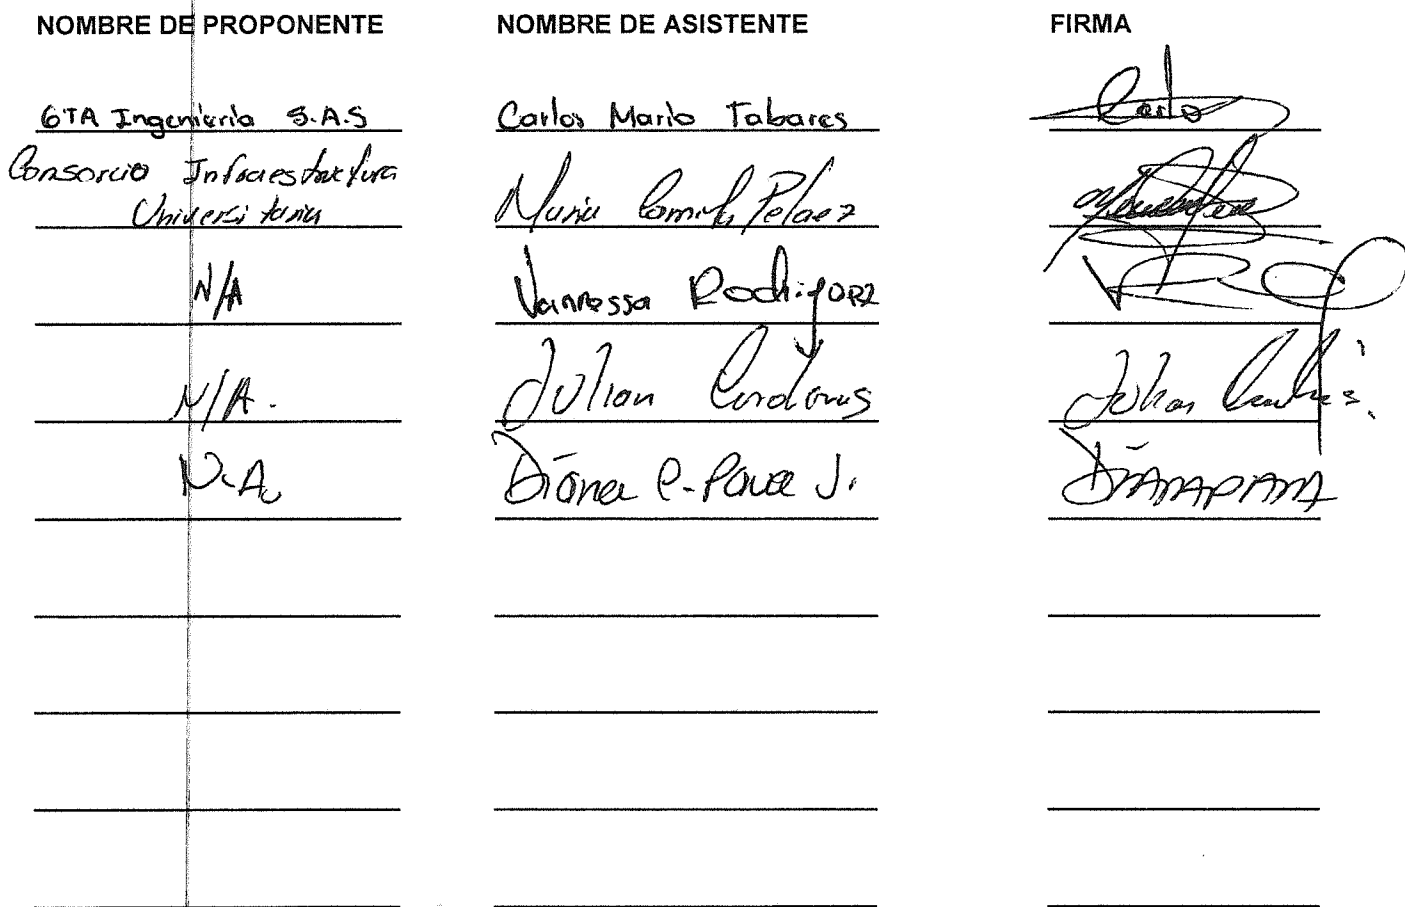 NOMBRE DE PROPONENTE NOMBRE DE ASISTENTE FIRMA
GTA Ingeniería S.A.S Carlos Mario Tabares Carlos
Consorcio Infraestructura
Universitaria Maria Camila Pelaez
N/A Vannessa Rodriguez
N/A. Julian Cardenas Julian
N.A. Diana P. Pava J.